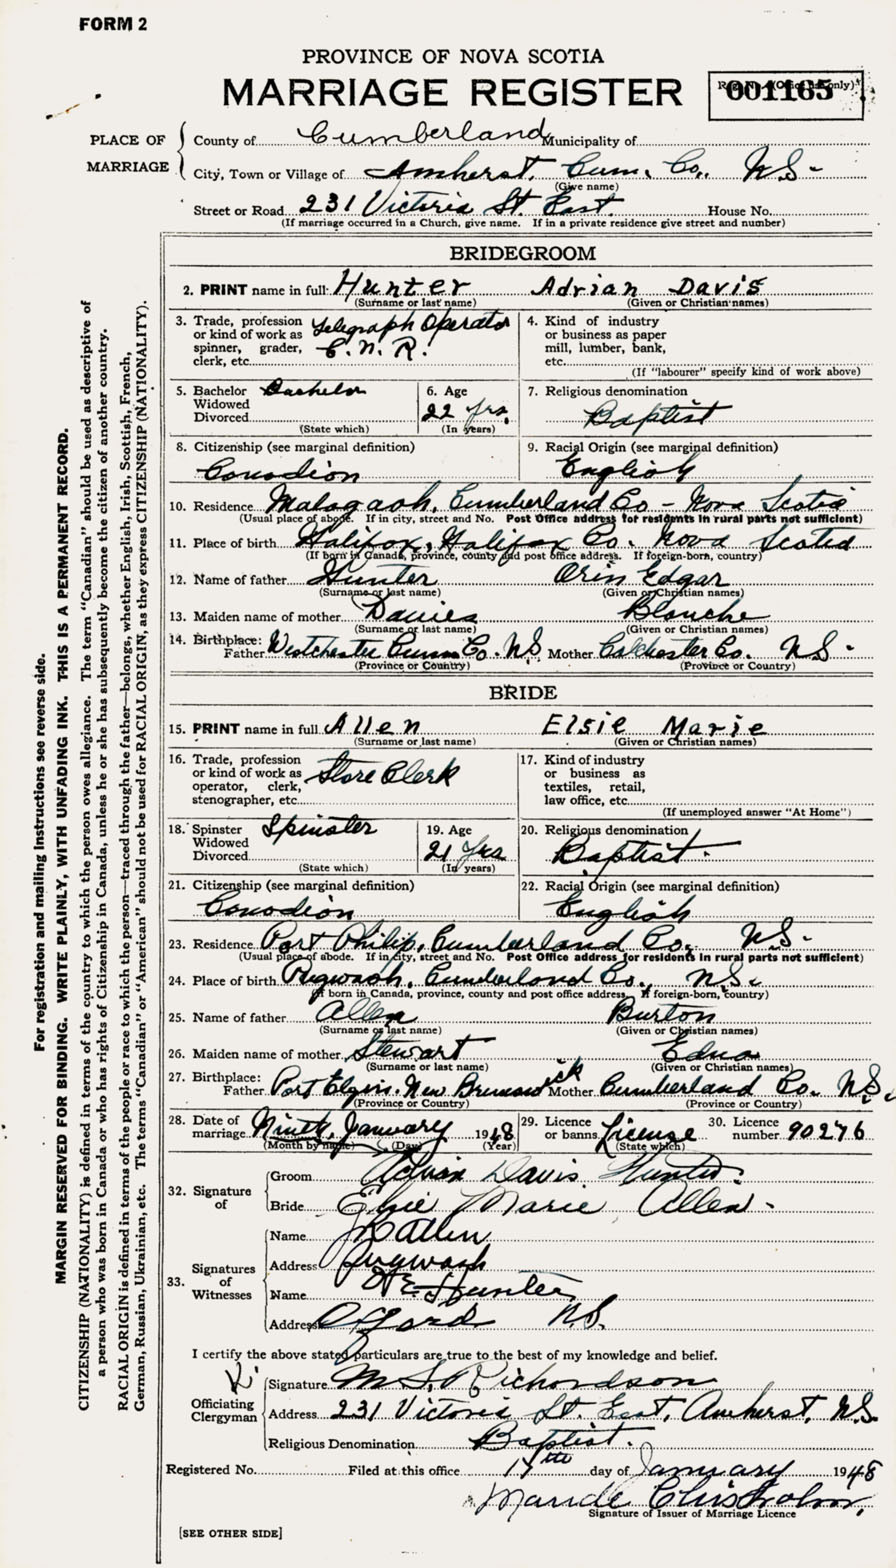 FORM 2
PROVINCE OF NOVA SCOTIA
MARRIAGE REGISTER
001165
PLACE OF MARRIAGE
County of Cumberland Municipality of
City, Town or Village of Amherst, Cum. Co., N.S.
(Give name)
Street or Road 231 Victoria St. East. House No.
(If marriage occurred in a Church, give name. If in a private residence give street and number)
BRIDEGROOM
2. PRINT name in full: Hunter Adrian Davis
(Surname or last name) (Given or Christian names)
3. Trade, profession or kind of work as spinner, grader, clerk, etc. Telegraph Operator C.N.R.
4. Kind of industry or business as paper mill, lumber, bank, etc.
(If "labourer" specify kind of work above)
5. Bachelor Widowed Divorced Bachelor
(State which)
6. Age 22 yrs.
(In years)
7. Religious denomination
Baptist
8. Citizenship (see marginal definition)
Canadian
9. Racial Origin (see marginal definition)
English
10. Residence Malagash, Cumberland Co - Nova Scotia
(Usual place of abode. If in city, street and No. Post Office address for residents in rural parts not sufficient)
11. Place of birth Halifax, Halifax Co. Nova Scotia
(If born in Canada, province, county and post office address. If foreign-born, country)
12. Name of father Hunter Orin Edgar
(Surname or last name) (Given or Christian names)
13. Maiden name of mother Davies Blanche
(Surname or last name) (Given or Christian names)
14. Birthplace: Father Westchester Cumm Co. N.S. Mother Colchester Co. N.S.
(Province or Country) (Province or Country)
BRIDE
15. PRINT name in full Allen Elsie Marie
(Surname or last name) (Given or Christian names)
16. Trade, profession or kind of work as operator, clerk, stenographer, etc. Store Clerk
17. Kind of industry or business as textiles, retail, law office, etc.
(If unemployed answer "At Home")
18. Spinster Widowed Divorced Spinster
(State which)
19. Age 21 Yrs
(In years)
20. Religious denomination
Baptist.
21. Citizenship (see marginal definition)
Canadian
22. Racial Origin (see marginal definition)
English
23. Residence Port Philip, Cumberland Co, N.S.
(Usual place of abode. If in city, street and No. Post Office address for residents in rural parts not sufficient)
24. Place of birth Pugwash, Cumberland Co., N.S.
(If born in Canada, province, county and post office address. If foreign-born, country)
25. Name of father Allen Burton
(Surname or last name) (Given or Christian names)
26. Maiden name of mother Stewart Edna
(Surname or last name) (Given or Christian names)
27. Birthplace: Father Port Elgin. New Brunswick Mother Cumberland Co. N.S.
(Province or Country) (Province or Country)
28. Date of marriage Ninth, January 1948
(Month by name) (Day) (Year)
29. Licence or banns License
(State which)
30. Licence number 90276
32. Signature of
Groom Adrian Davis Hunter.
Bride Elsie Marie Allen.
33. Signatures of Witnesses
Name Allen
Address Pugwash
Name Hunter
Address Oxford N.S.
I certify the above stated particulars are true to the best of my knowledge and belief.
Officiating Clergyman
Signature Richardson
Address 231 Victoria St. East, Amherst, N.S.
Religious Denomination Baptist.
Registered No. Filed at this office 17th day of January 1948
Maude Chisholm,
Signature of Issuer of Marriage Licence
[SEE OTHER SIDE]
For registration and mailing instructions see reverse side.
MARGIN RESERVED FOR BINDING. WRITE PLAINLY, WITH UNFADING INK. THIS IS A PERMANENT RECORD.
CITIZENSHIP (NATIONALITY) is defined in terms of the country to which the person owes allegiance. The term "Canadian" should be used as descriptive of
a person who was born in Canada or who has rights of Citizenship in Canada, unless he or she has subsequently become the citizen of another country.
RACIAL ORIGIN is defined in terms of the people or race to which the person—traced through the father—belongs, whether English, Irish, Scottish, French,
German, Russian, Ukrainian, etc. The terms "Canadian" or "American" should not be used for RACIAL ORIGIN, as they express CITIZENSHIP (NATIONALITY).